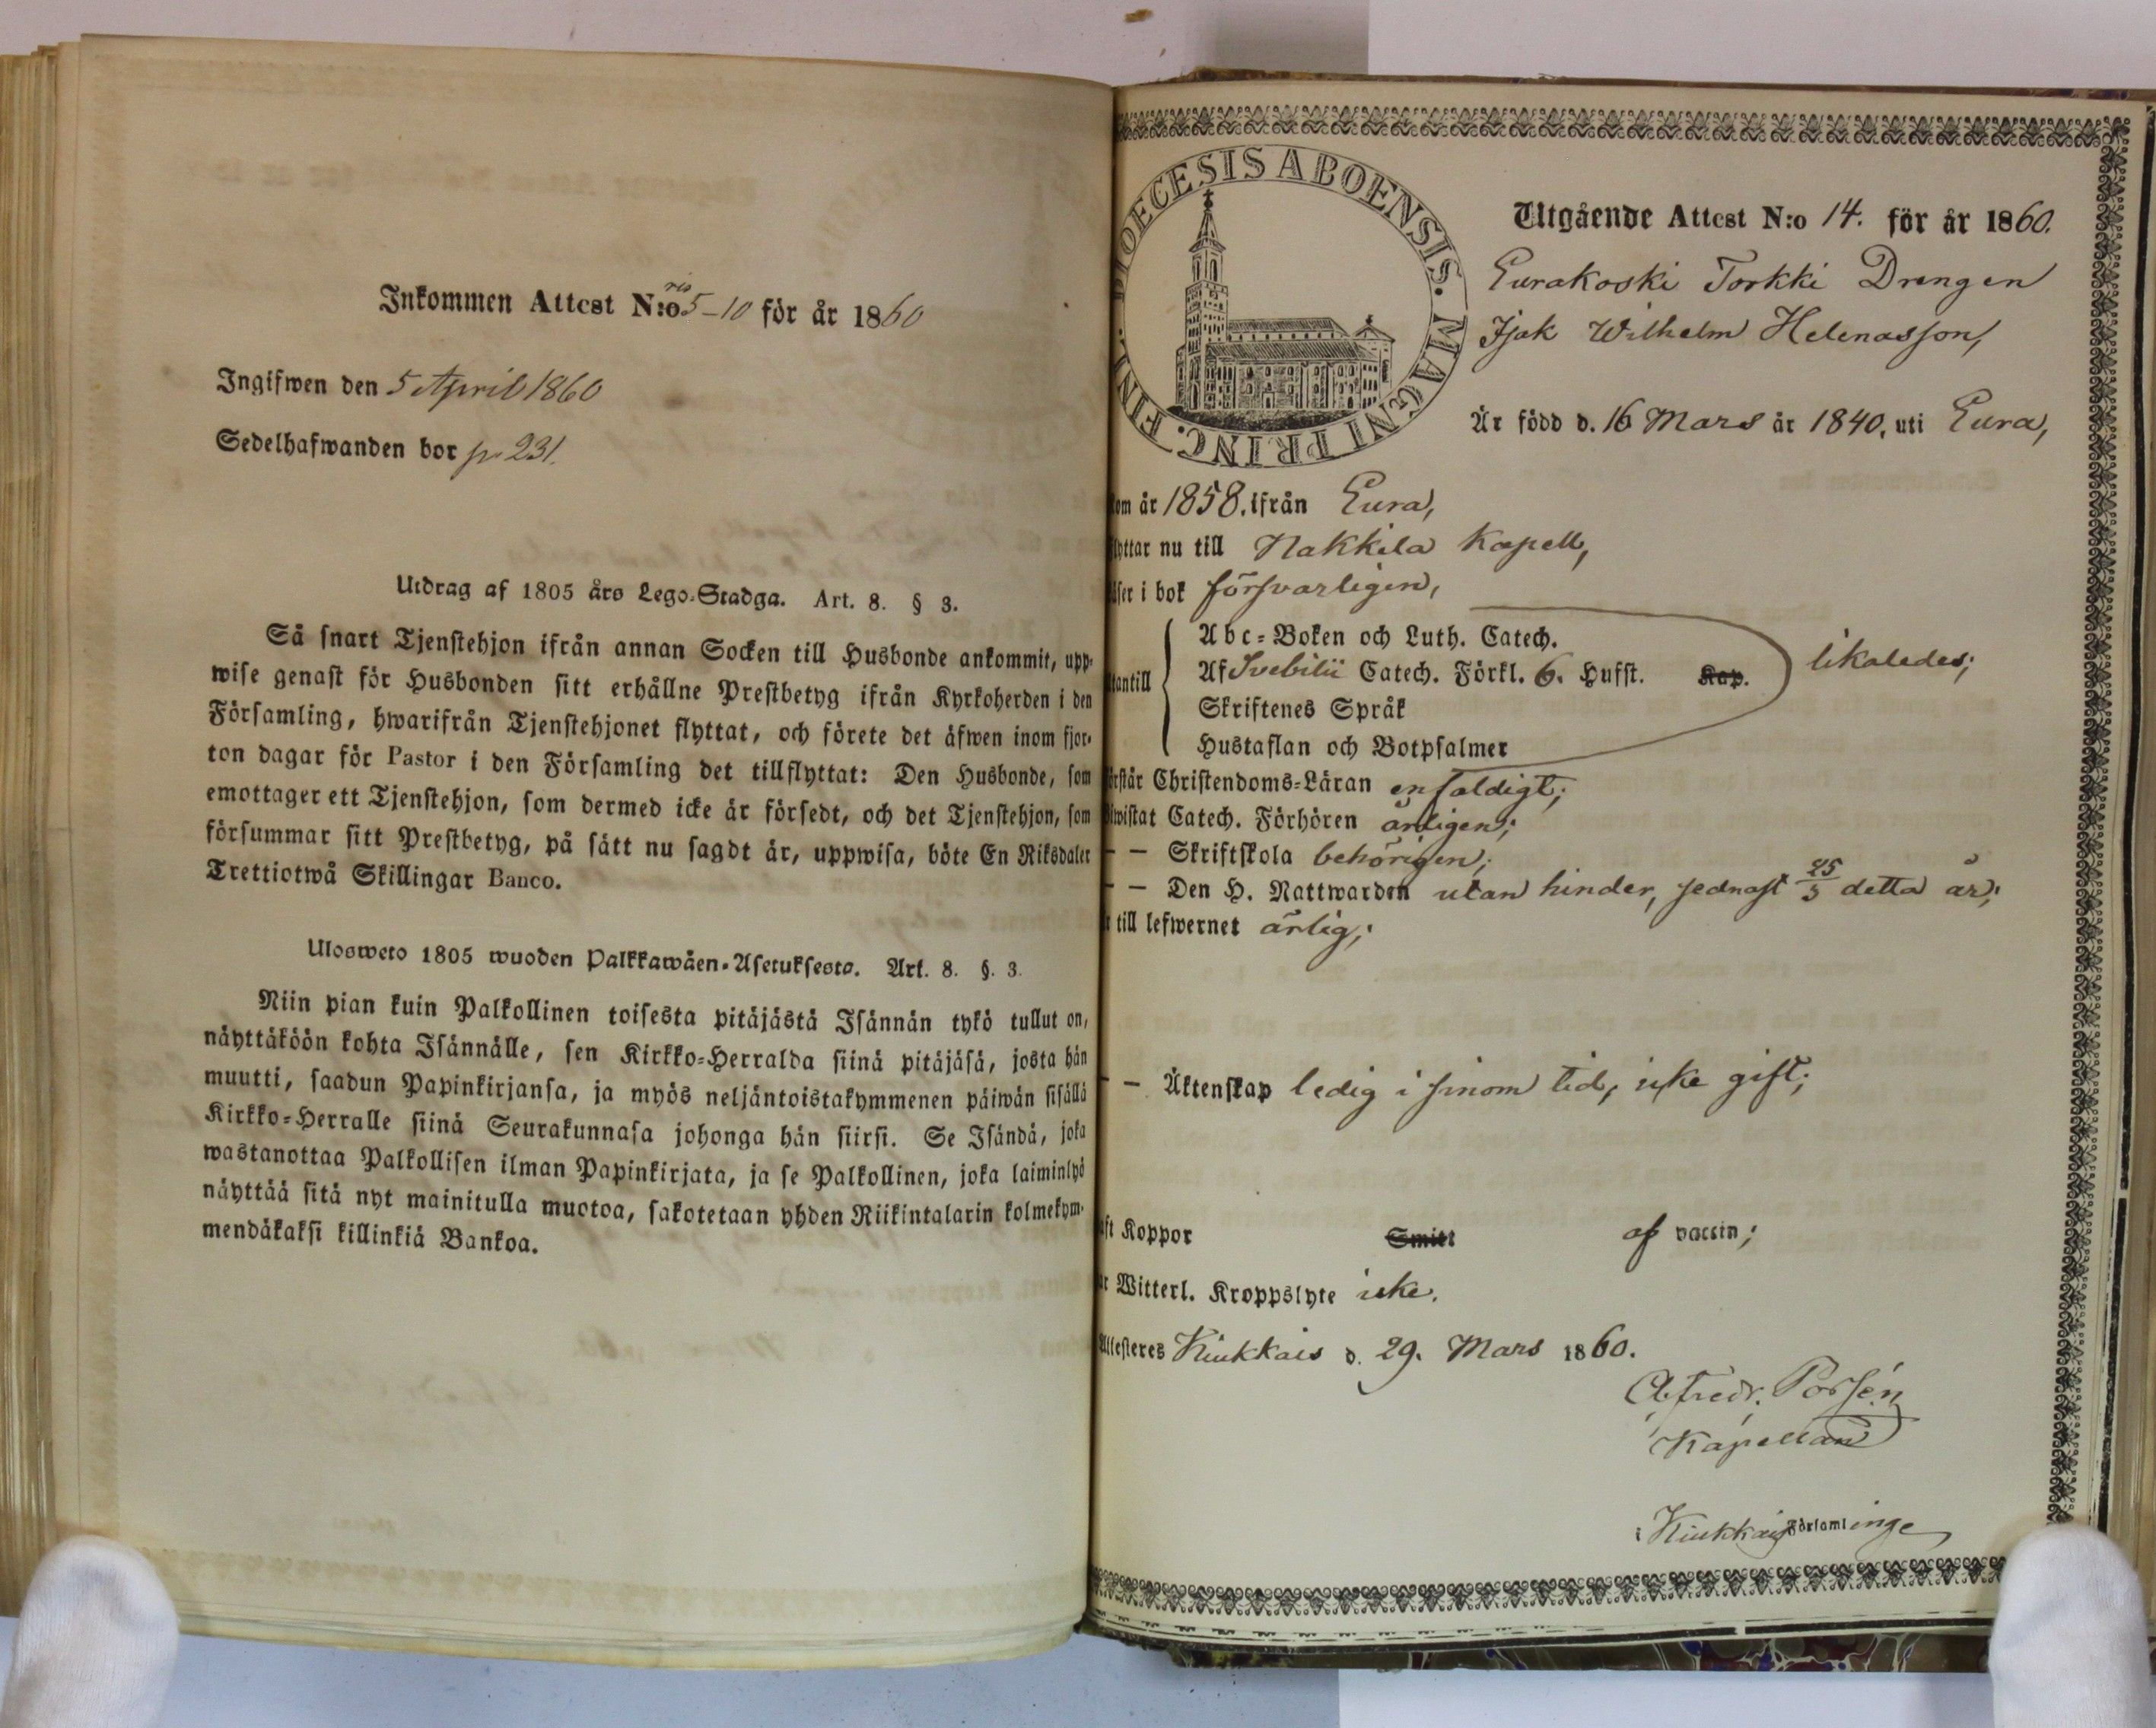 Inkommen Attest N:o ris 5–10 för år 1860
Ingifwen den 5 April 1860
Sedelhafwanden bor p. 231.
Utdrag af 1805 års Lego-Stadga. Art. 8. § 3.
Så snart Tjenstehjon ifrån annan Socken till Husbonde ankommit, upp-
wise genast för Husbonden sitt erhållne Prestbetyg ifrån Kyrkoherden i den
Församling, hwarifrån Tjenstehjonet flyttat, och förete det äfwen inom fjor-
ton dagar för Pastor i den Församling det tillflyttat: Den Husbonde, som
emottager ett Tjenstehjon, som dermed icke är försedt, och det Tjenstehjon, som
försummar sitt Prestbetyg, på sätt nu sagdt är, uppwisa, böte En Riksdaler
Trettiotwå Skillingar Banco.
Ulosweto 1805 wuoden Palkkawäen-Asetuksesta. Art. 8. §. 3.
Niin pian kuin Palkollinen toisesta pitäjästä Isännän tykö tullut on,
näyttäköön kohta Isännälle, sen Kirkko-Herralda siinä pitäjäsä, josta hän
muutti, saadun Papinkirjansa, ja myös neljäntoistakymmenen päiwän sisällä
Kirkko-Herralle siinä Seurakunnasa johonga hän siirsi. Se Isändä, joka
wastanottaa Palkollisen ilman Papinkirjata, ja se Palkollinen, joka laiminlyö
näyttää sitä nyt mainitulla muotoa, sakotetaan yhden Riikintalarin kolmekym-
mendäkaksi killinkiä Bankoa.
DIOECESIS ABOENSIS. MAGNI PRINC. FINL.
Utgående Attest N:o 14. för år 1860.
Eurakoski Torkki Drengen
Isak Wilhelm Helenasson,
Är född d. 16 Mars år 1840, uti Eura,
kom år 1858. ifrån Eura,
flyttar nu till Nakkila Kapell,
läser i bok försvarligen,
utantill
Abc-Boken och Luth. Catech.
Af Svebilii Catech. Förkl. 6. Hufst. Kap.
Skriftenes Språk
Hustaflan och Botpsalmer
likaledes;
förstår Christendoms-Läran enfaldigt;
bewistat Catech. Förhören årligen;
— — Skriftskola behörigen;
— — Den H. Nattwarden utan hinder, sednast 25/3 detta år;
är till lefwernet ärlig;
— — Äktenskap ledig i sinom tid, icke gift;
haft Koppor Smitt af vaccin;
har Witterl. Kroppslyte icke.
Attesteres Kiukkais d. 29. Mars 1860.
A. Fredr. Porsén,
Kapellan
i Kiukkais Församlinge